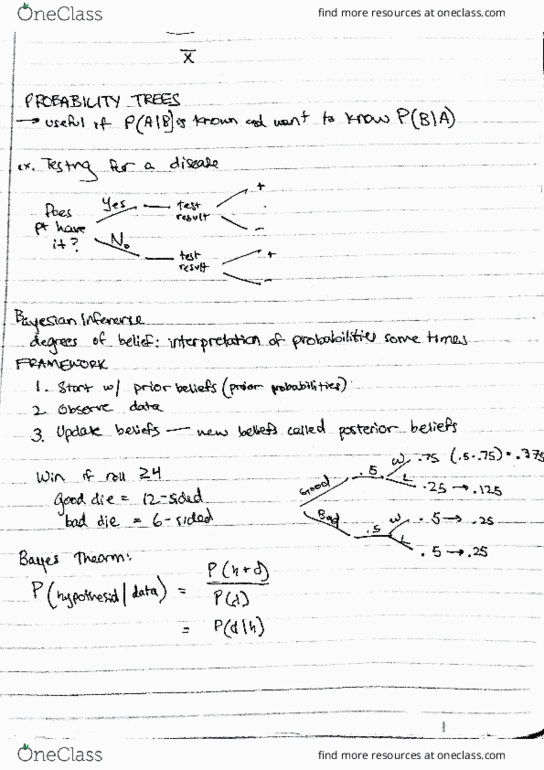 OneClass
find more resources at oneclass.com
x̄
PROBABILITY TREES
→ useful if P(A|B) is known and want to know P(B|A)
ex. Testing for a disease
Does pt have it?
Yes — test result
+
-
No — test result
+
-
Bayesian Inference
degrees of belief: interpretation of probabilities some times
FRAMEWORK
1. Start w/ prior beliefs (prior probabilities)
2. Observe data
3. Update beliefs — new beliefs called posterior beliefs
Win if roll ≥4
good die = 12-sided
bad die = 6-sided
Good .5 W .75 (.5·.75) = .375
L .25 → .125
Bad .5 W .5 → .25
L .5 → .25
Bayes Theorm:
P(hypothesis|data) = P(h+d)
P(d)
= P(d|h)
1
OneClass
find more resources at oneclass.com